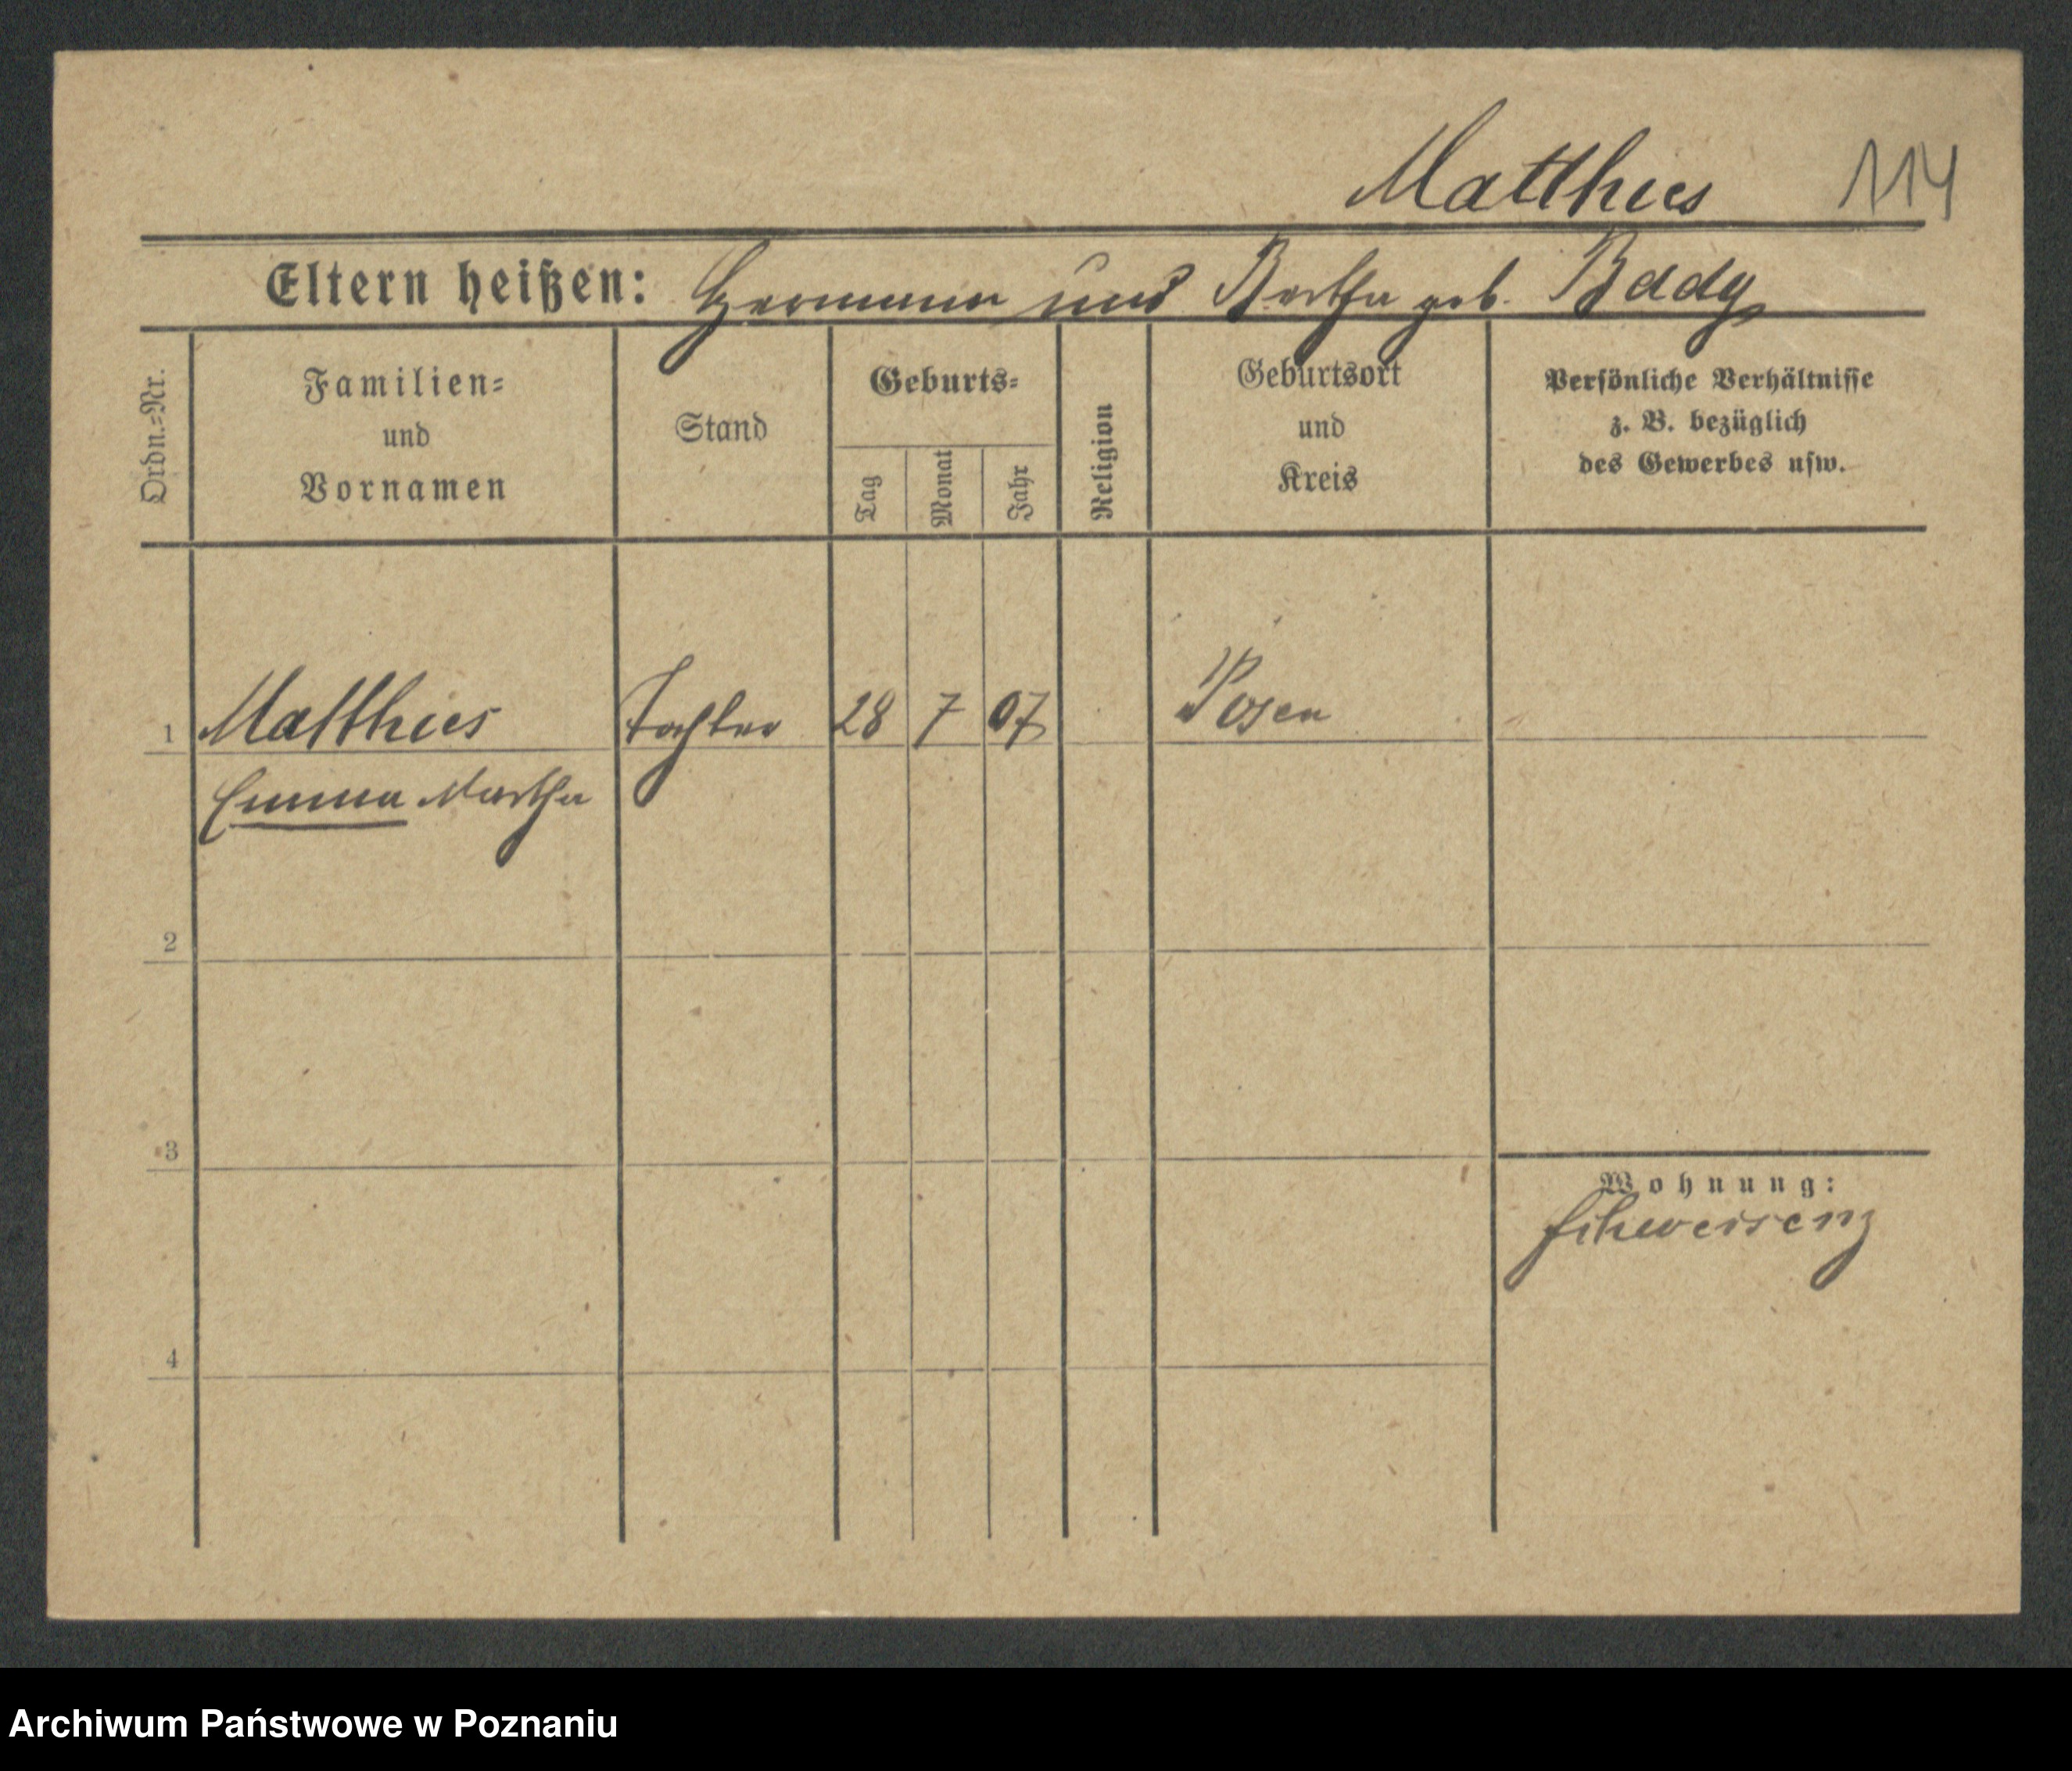 Matthies 114
Eltern heißen: Hermann und Bertha geb. Bady
Ordn.=Nr.
Familien=
und
Vornamen
Stand
Geburts=
Tag
Monat
Jahr
Religion
Geburtsort
und
Kreis
Persönliche Verhältnisse
z. B. bezüglich
des Gewerbes usw.
1 Matthies Tochter 28 7 07 Posen
Emma Martha
2
3
Wohnung:
Schwersenz
4
Archiwum Państwowe w Poznaniu